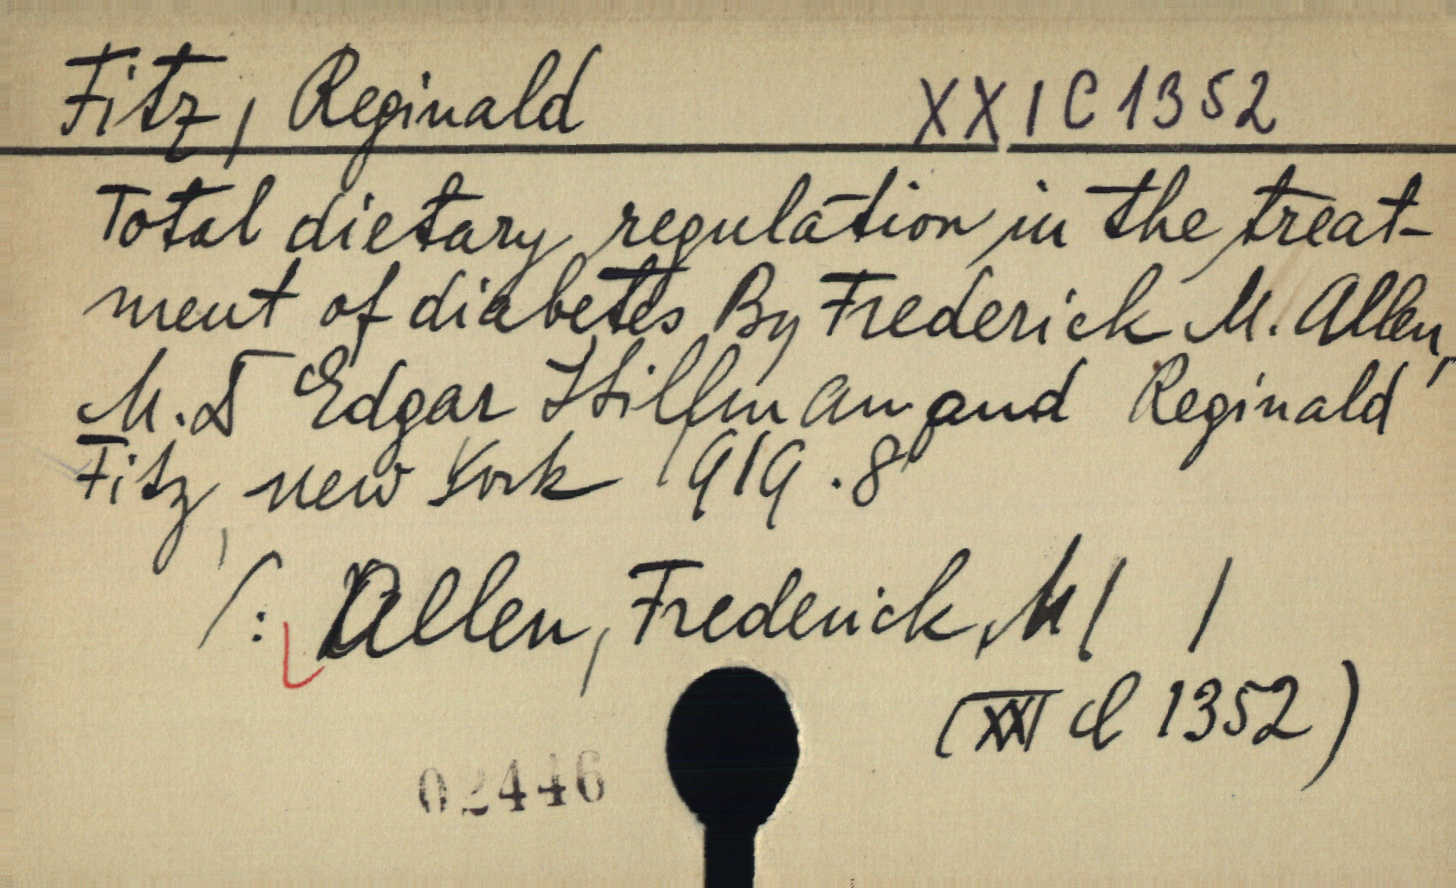 Fitz, Reginald XXI C 1352
Total dietary regulation in the treat-
ment of diabetes By Frederick M. Allen,
M.D Edgar Stillman and Reginald
Fitz, new York 1919. 8°
/: Allen, Frederick, M/ /
(XXI C 1352)
02446